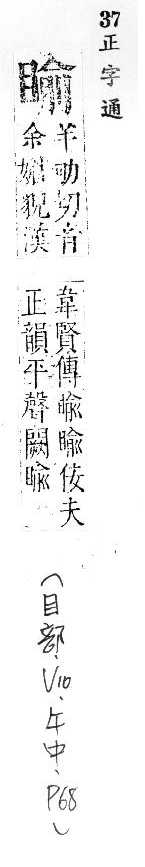 37正字通
睮
羊劬切音
余媚貌漢
韋賢傳睮睮侫夫
正韻平聲闕睮
(目部、V10、午中、P68)